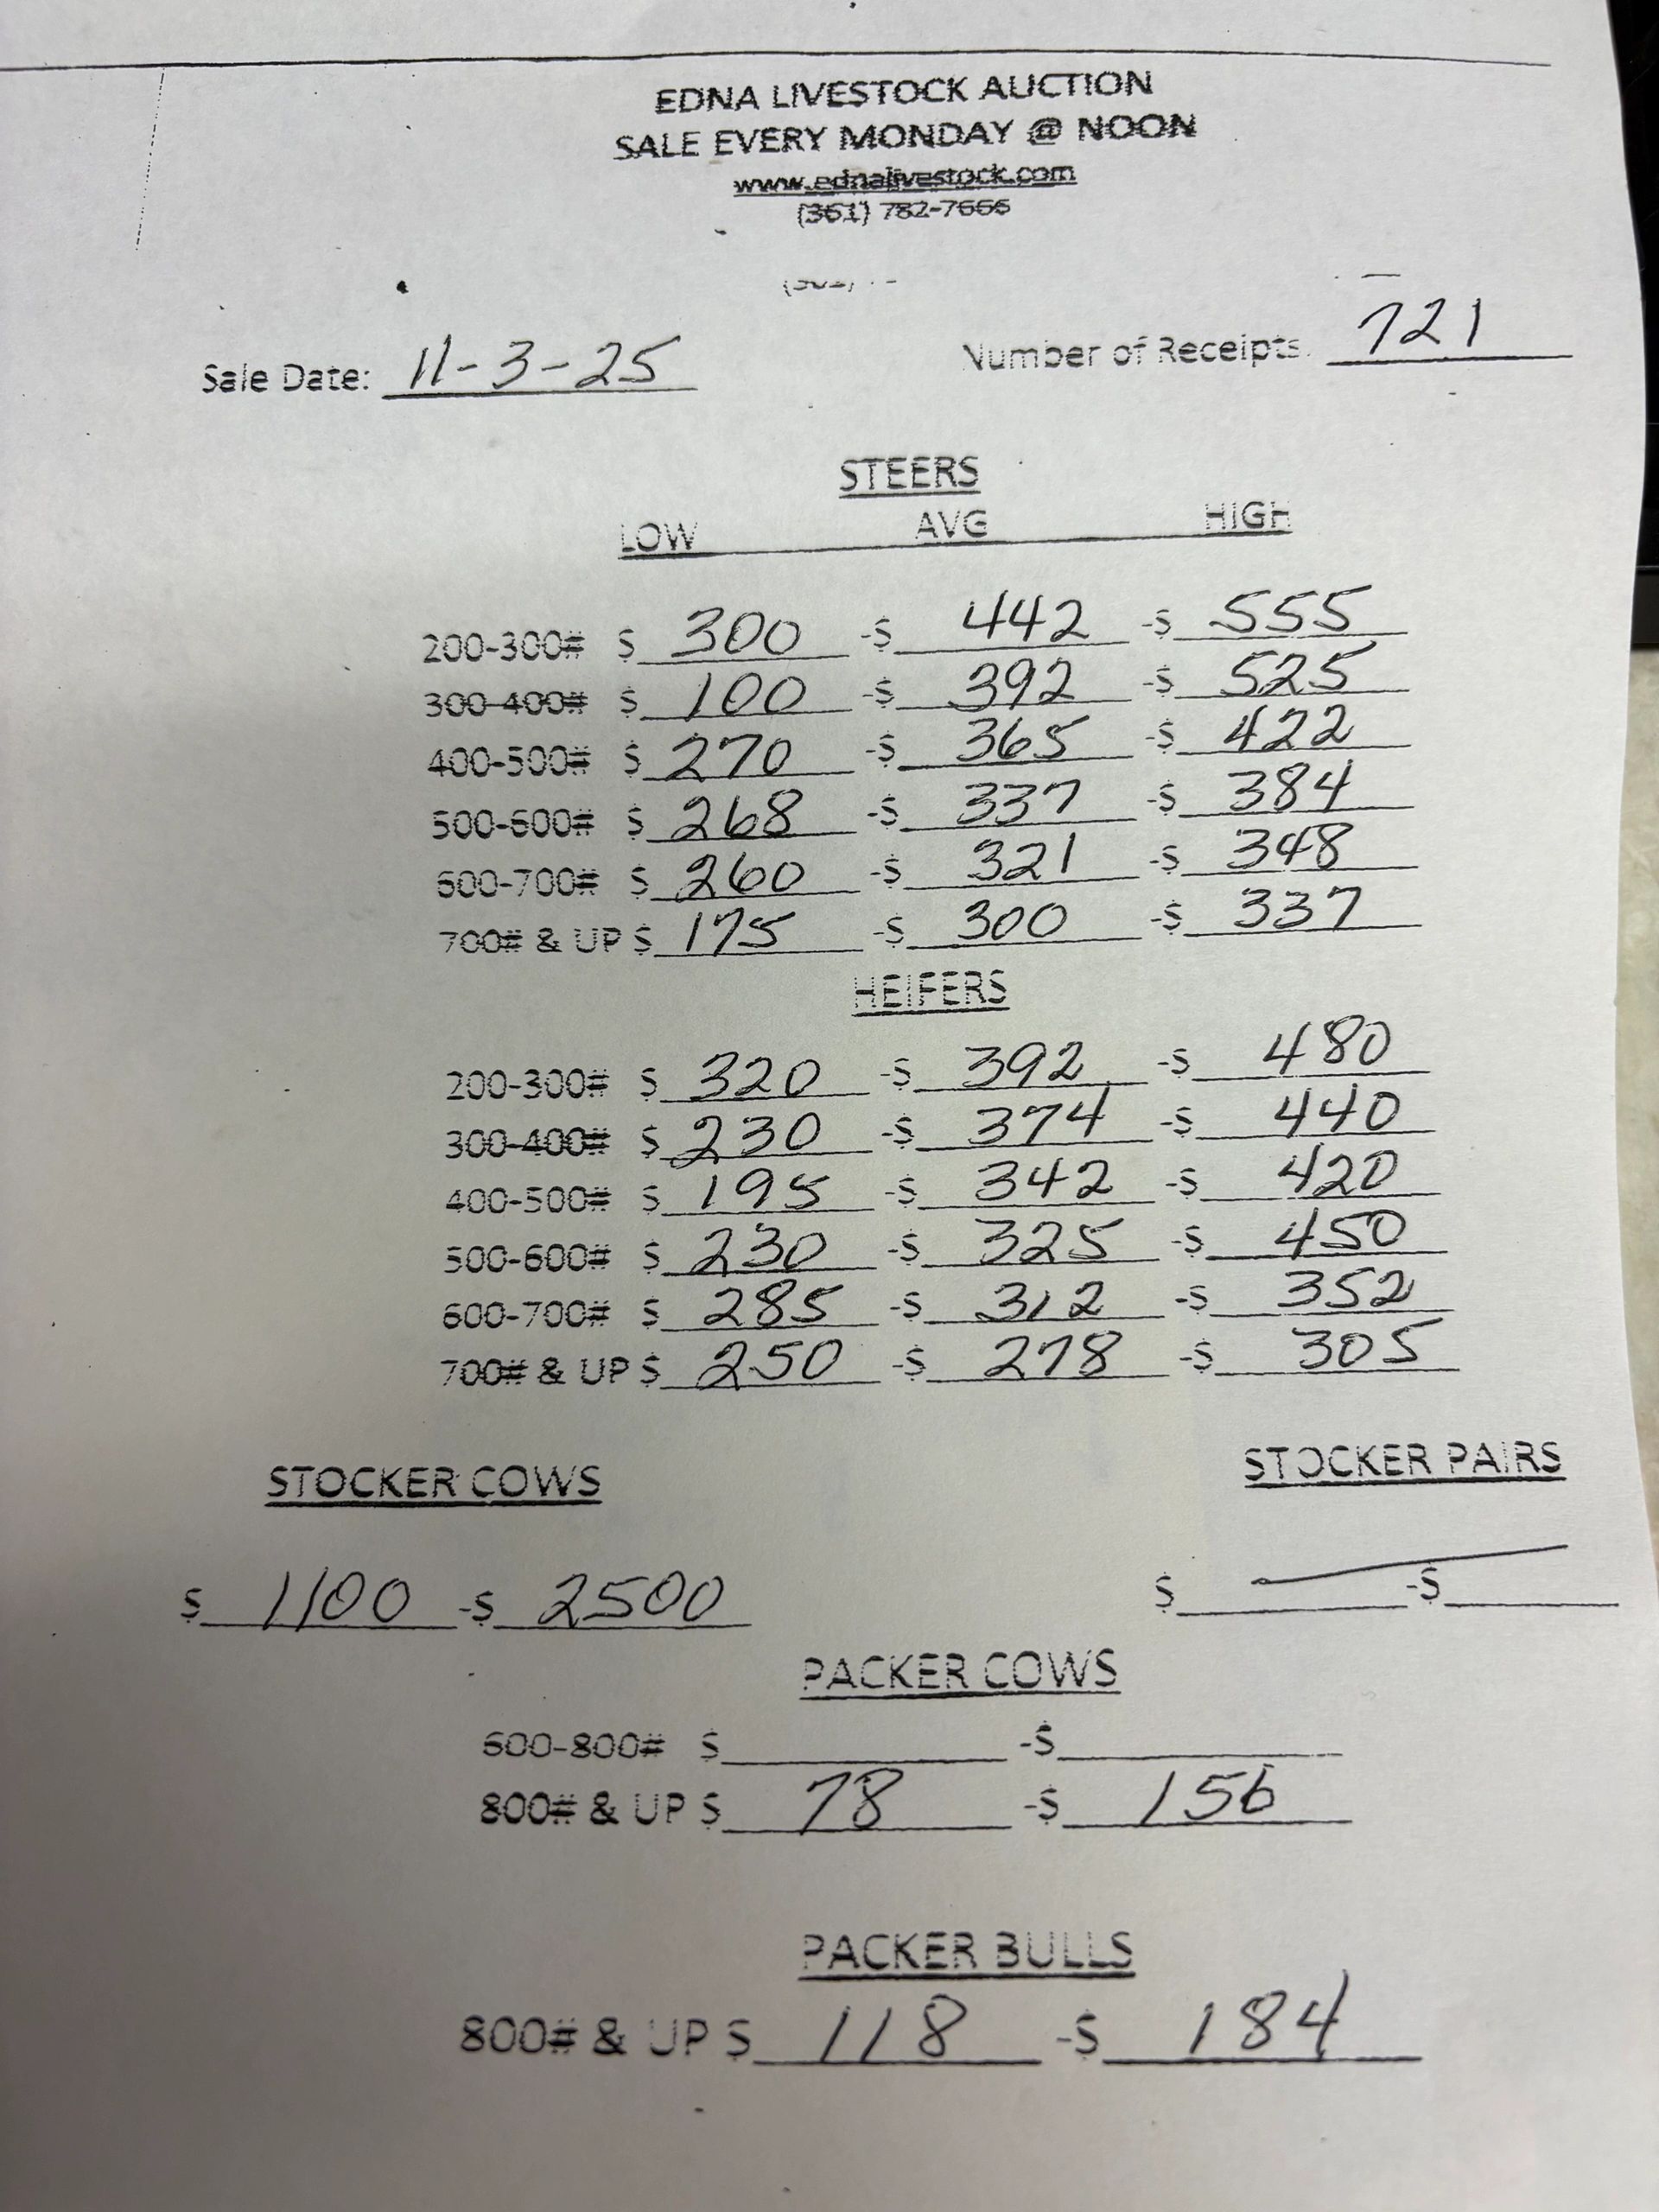 EDNA LIVESTOCK AUCTION
SALE EVERY MONDAY @ NOON
www.ednalivestock.com
(361) 782-7666
Sale Date: 11-3-25 Number of Receipts: 721
STEERS
LOW AVG HIGH
200-300# $ 300 -$ 442 -$ 555
300-400# $ 100 -$ 392 -$ 525
400-500# $ 270 -$ 365 -$ 422
500-600# $ 268 -$ 337 -$ 384
600-700# $ 260 -$ 321 -$ 348
700# & UP $ 175 -$ 300 -$ 337
HEIFERS
200-300# $ 320 -$ 392 -$ 480
300-400# $ 230 -$ 374 -$ 440
400-500# $ 195 -$ 342 -$ 420
500-600# $ 230 -$ 325 -$ 450
600-700# $ 285 -$ 312 -$ 352
700# & UP $ 250 -$ 278 -$ 305
STOCKER COWS STOCKER PAIRS
$ 1100 -$ 2500 $ -$
PACKER COWS
600-800# $ -$
800# & UP $ 78 -$ 156
PACKER BULLS
800# & UP $ 118 -$ 184